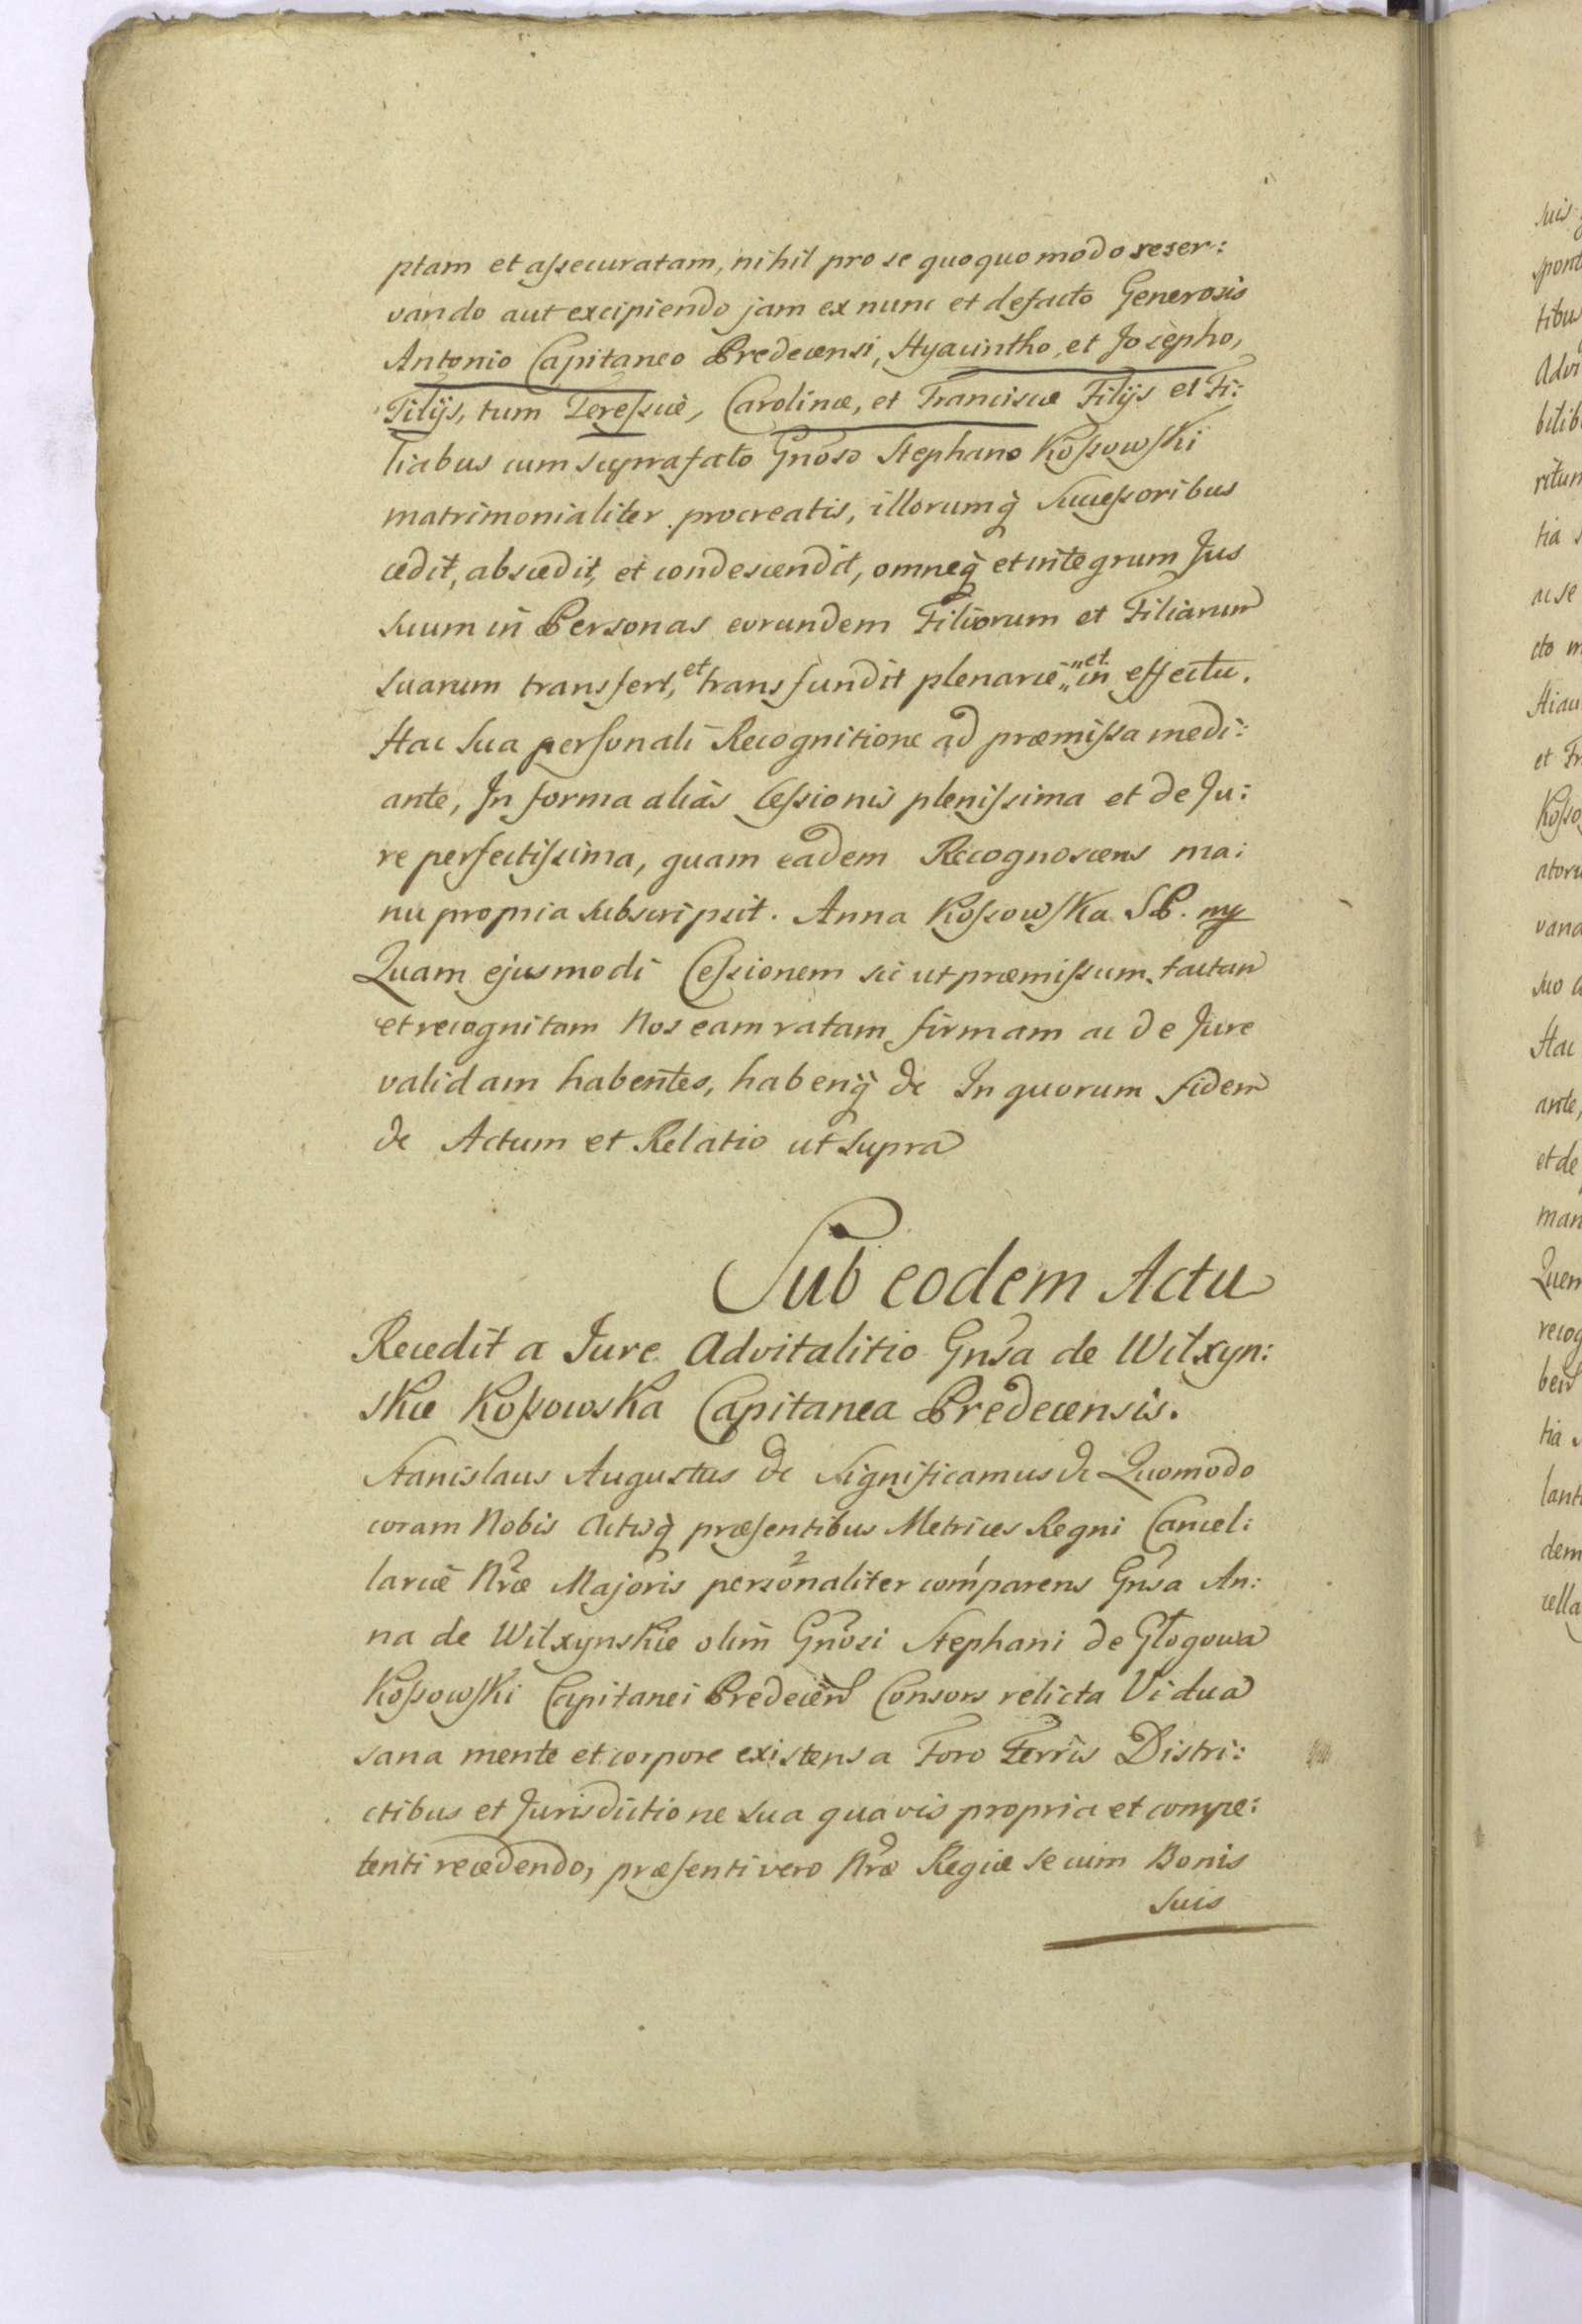 ptam et assecuratam, nihil pro se quoquo modo reser:
vando aut excipiendo jam ex nunc et defacto Generosis
Antonio Capitaneo Predecensi, Hyacintho, et Josepho,
Filijs, tum Teressiæ, Carolinæ, et Franciscæ Filijs et Fi:
liabus cum suprafato Gnoso Stephano Kossowski
matrimonialiter procreatis, illorumq̀ Successoribus
cedit, abscedit, et condescendit, omneq̀ et integrum Jus
suum in Personas eorundem Filiorum et Filiarum
suarum transfert, et transfundit plenarie „et in effectu.
Hac sua personali Recognitione ad præmissa medi:
ante, In forma alias Cessionis plenissima et de Ju:
re perfectissima, quam eadem Recognoscens ma:
nu propria subscripsit. Anna Kossowska SP. mp
Quam ejusmodi Cessionem sic ut præmissum factam
et recognitam Nos eam ratam firmam ac de Jure
validam habentes, habenq̀ &c In quorum fidem
&c Actum et Relatio ut supra
Sub eodem Actu
Recedit a Jure Advitalitio Gnsa de Wilxyn:
skie Kossowska Capitanea Predecensis.
Stanislaus Augustus &c Significamus &c Quomodo
coram Nobis Actisq̀ præsentibus Metrices Regni Cancel:
lariæ Nræ Majoris personaliter comparens Gnsa An:
na de Wilxynskie olim Gnosi Stephani de Głogowa
Kossowski Capitanei Predecens Consors relicta Vidua
sana mente et corpore existens a Foro Terris Distri:
ctibus et Jurisdictione sua quavis propria et compe:
tenti recedendo, præsenti vero Nræ Regiæ se cum Bonis
suis